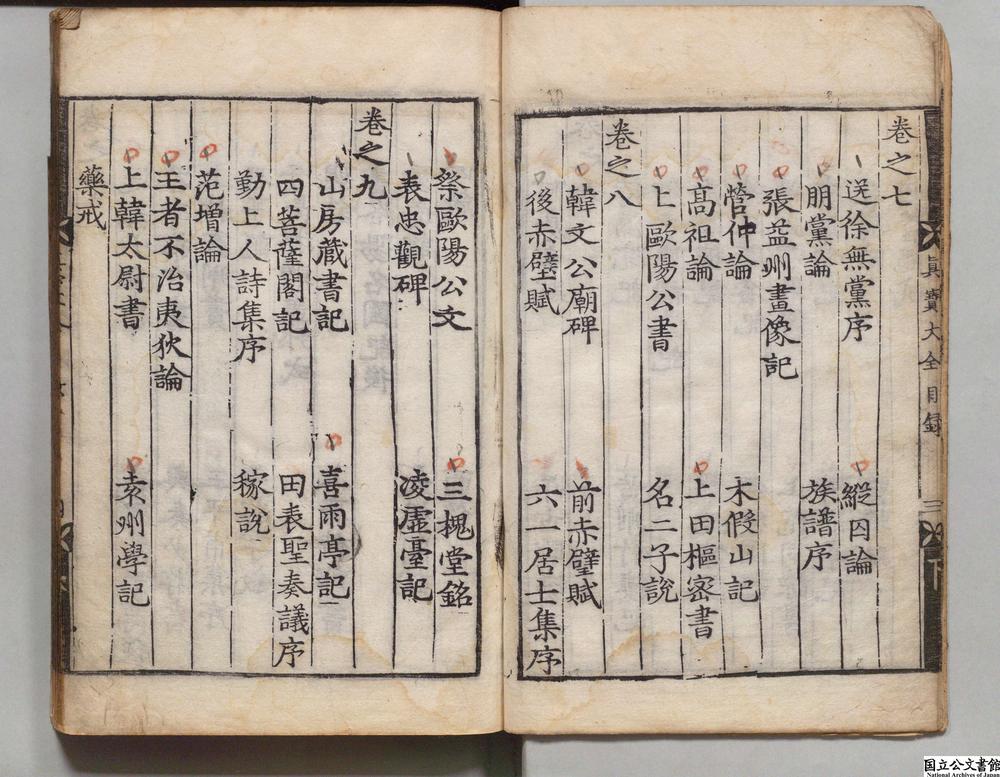 卷之七
送徐無黨序 縱囚論
朋黨論 族譜序
張益州畫像記
管仲論 木假山記
高祖論 上田樞密書
上歐陽公書 名二子說
卷之八
韓文公廟碑 前赤壁賦
後赤壁賦 六一居士集序
眞寶大全目録 三 下
祭歐陽公文 三槐堂銘
表忠觀碑 凌虛臺記
卷之九
山房藏書記 喜雨亭記
四菩薩閣記 田表聖奏議序
勤上人詩集序 稼說
范增論
王者不治夷狄論
上韓太尉書 袁州學記
藥戒
国立公文書館
National Archives of Japan